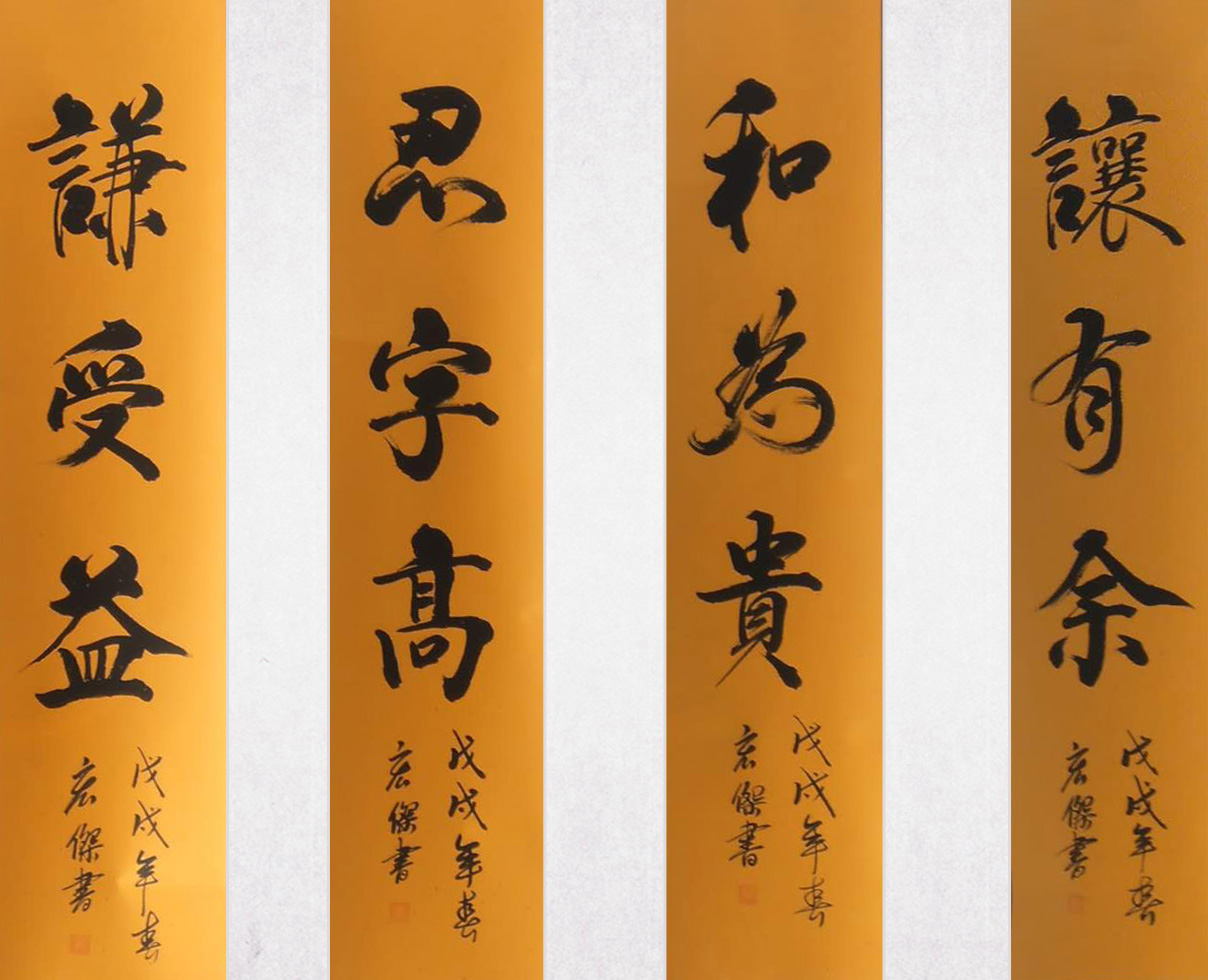 讓有余
戊戌年春
宏傑書
和為貴
戊戌年春
宏傑書
忍字高
戊戌年春
宏傑書
謙受益
戊戌年春
宏傑書